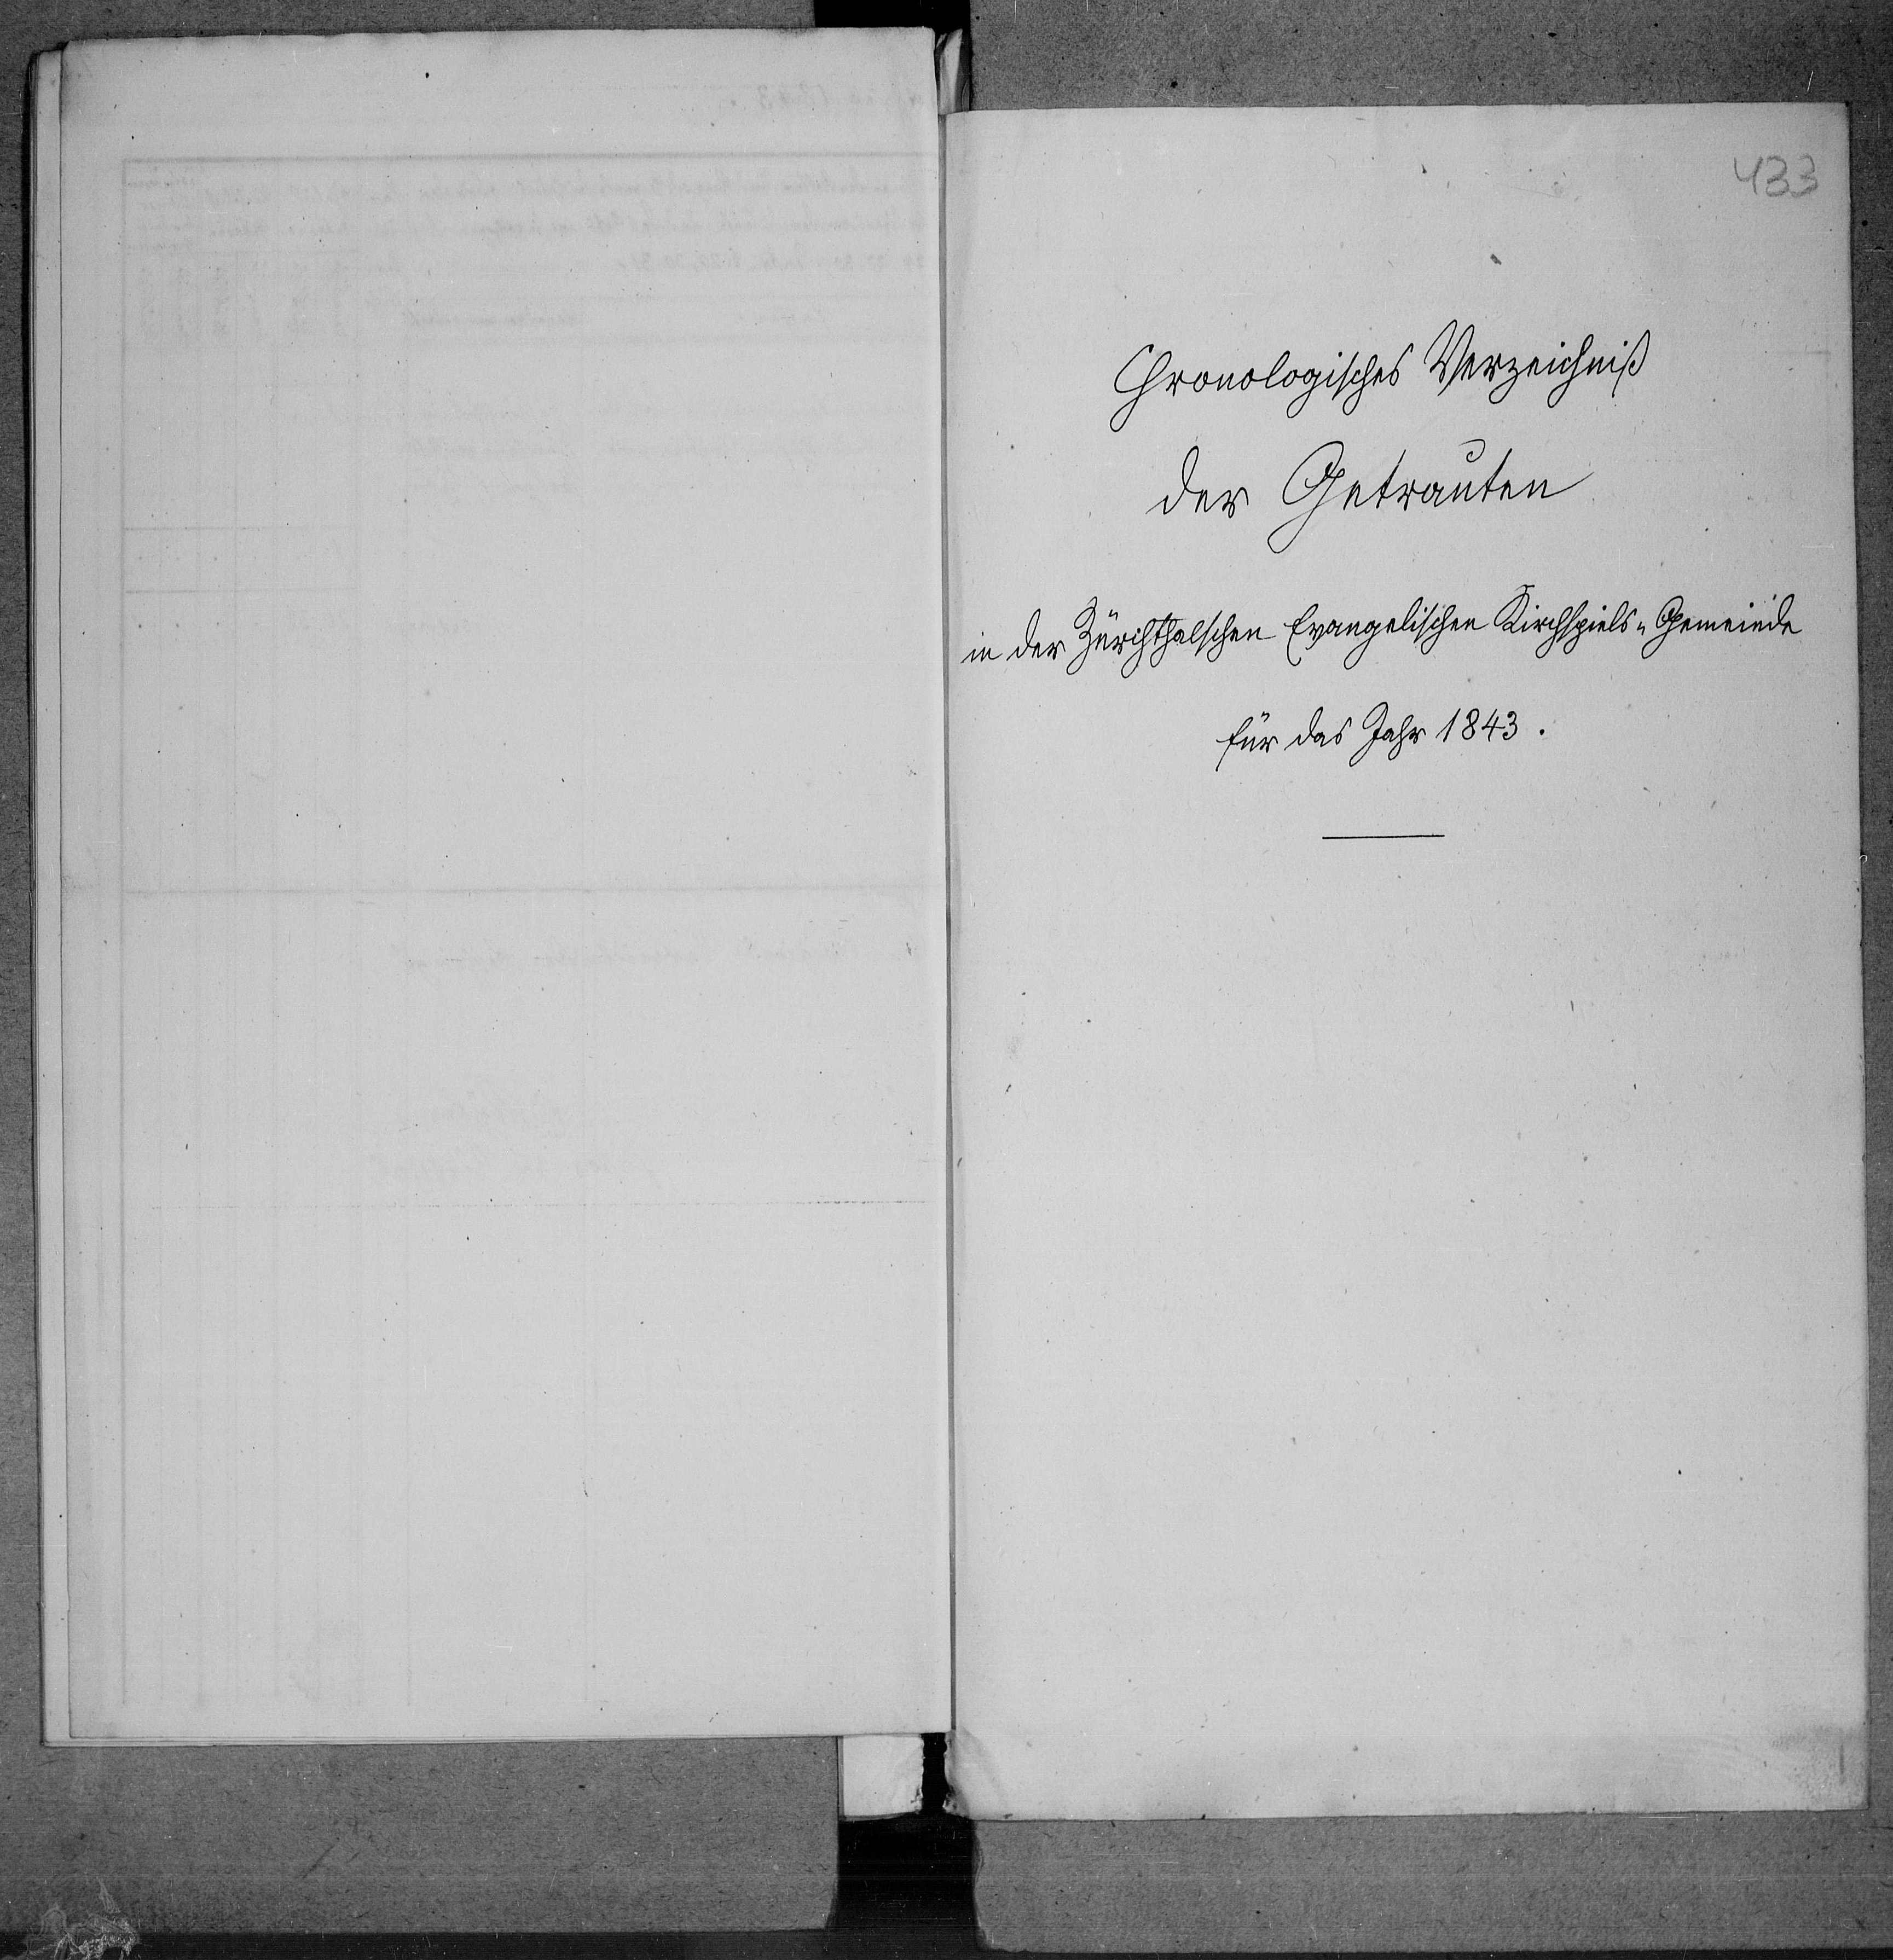 433
Chronologisches Verzeichniß
der Getrauten
in der Zürichthalschen Evangelischen Kirchspiels-Gemeinde
für das Jahr 1843.